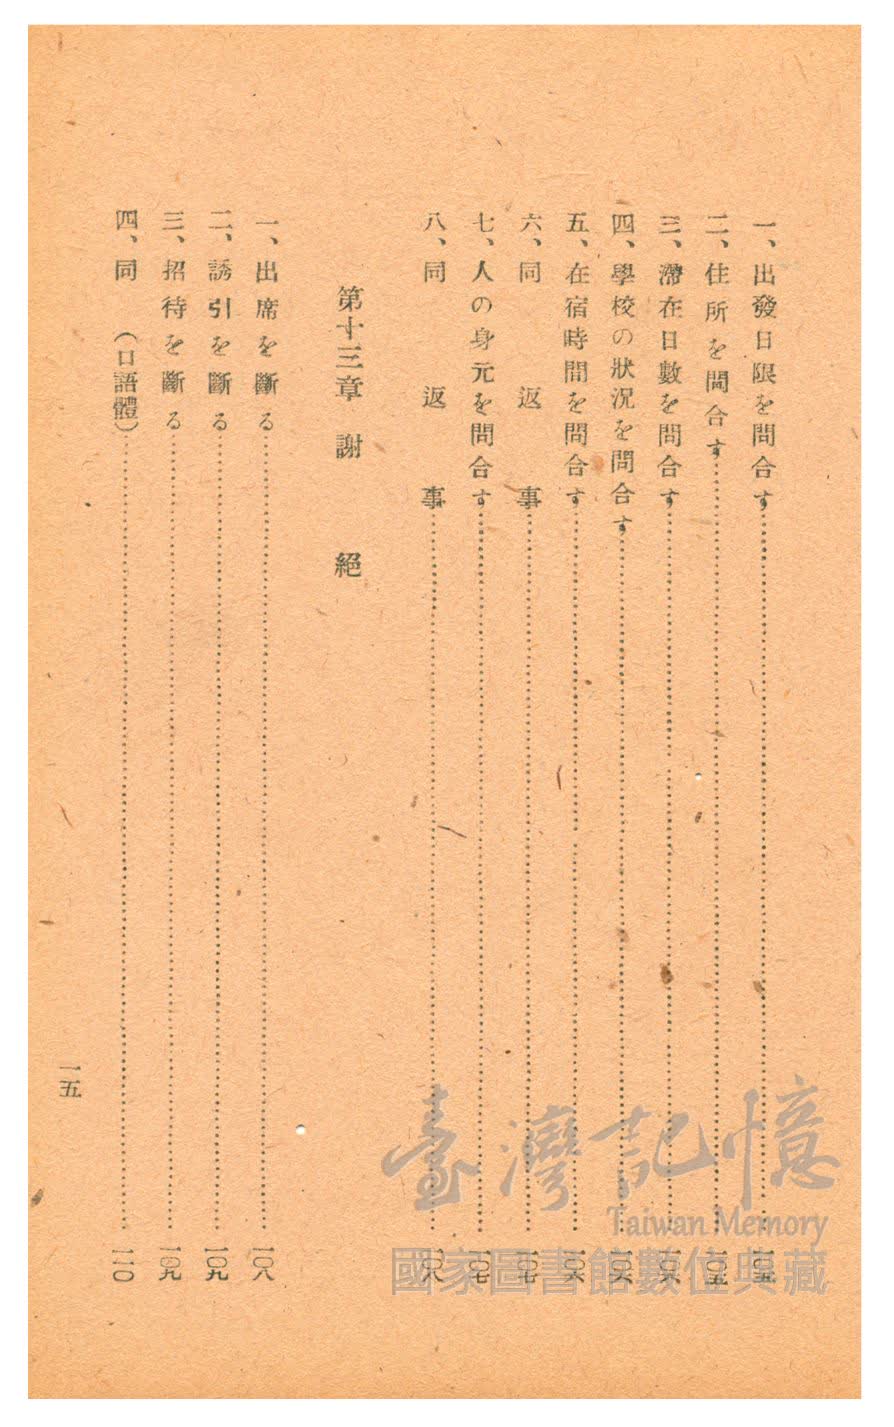 一、出發日限を問合す……一〇五
二、住所を問合す……一〇五
三、滯在日數を問合す……一〇六
四、學校の狀況を問合す……一〇六
五、在宿時間を問合す……一〇六
六、同　返　事……一〇七
七、人の身元を問合す……一〇七
八、同　返　事……一〇八
第十三章　謝　絕
一、出席を斷る……一〇八
二、誘引を斷る……一〇九
三、招待を斷る……一〇九
四、同　（口語體）……一一〇
一五
臺灣記憶
Taiwan Memory
國家圖書館數位典藏